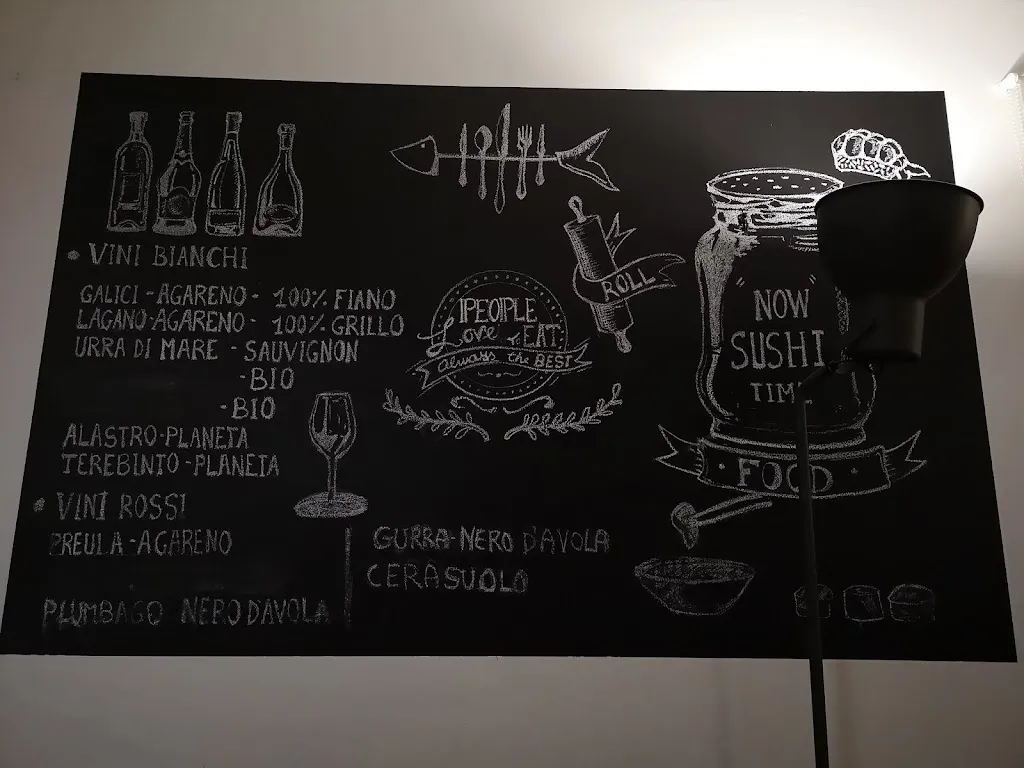 * VINI BIANCHI
GALICI - AGARENO - 100% FIANO
LAGANO - AGARENO - 100% GRILLO
URRA DI MARE - SAUVIGNON
-BIO
-BIO
ALASTRO-PLANETA
TEREBINTO-PLANETA
* VINI ROSSI
PREULA-AGARENO
PLUMBAGO NERO DAVOLA
GURRA-NERO D'AVOLA
CERASUOLO
PEOPLE
Love EAT
always the BEST
ROLL
"NOW"
SUSHI
FOOD